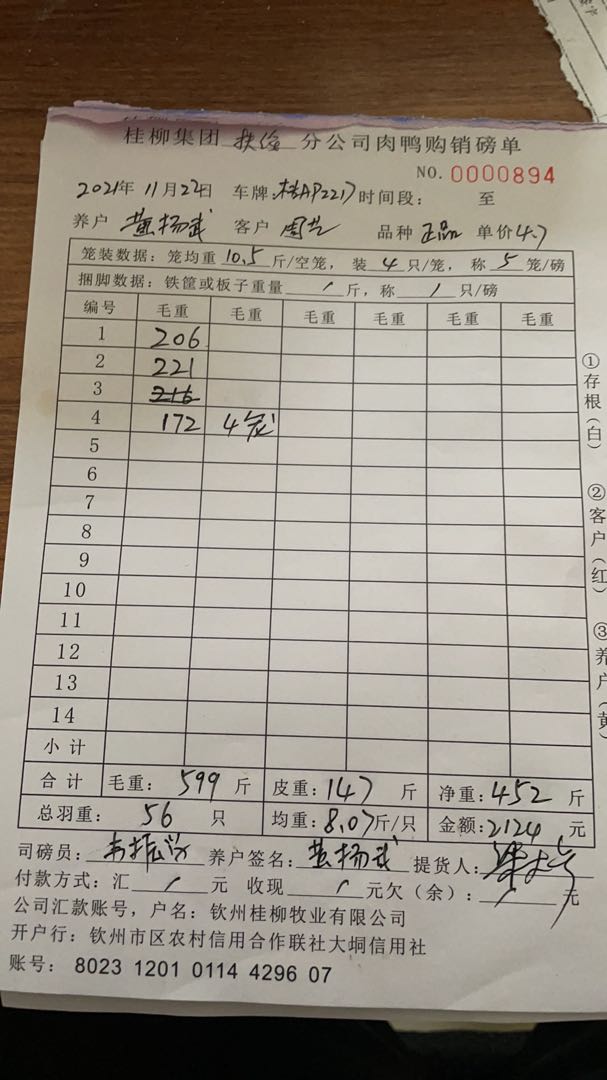 桂柳集团 扶绥 分公司肉鸭购销磅单
NO. 0000894
2021年 11月22日 车牌:桂AP2217 时间段: 至
养户 黄扬武 客户 周艺 品种 正品 单价4.7
笼装数据: 笼均重 10.5 斤/空笼, 装 4 只/笼, 称 5 笼/磅
捆脚数据: 铁筐或板子重量 / 斤, 称 / 只/磅
编号 毛重 毛重 毛重 毛重 毛重 毛重
1 206
2 221
3 216
4 172 4笼
5
6
7
8
9
10
11
12
13
14
小计
合计 毛重: 599 斤 皮重: 147 斤 净重: 452 斤
总羽重: 56 只 均重: 8.07斤/只 金额: 2124 元
司磅员: 养户签名: 黄扬武 提货人:
付款方式: 汇 / 元 收现 / 元欠(余): / 元
公司汇款账号, 户名: 钦州桂柳牧业有限公司
开户行: 钦州市区农村信用合作联社大垌信用社
账号: 8023 1201 0114 4296 07
①存根(白)
②客户(红)
③养户(黄)